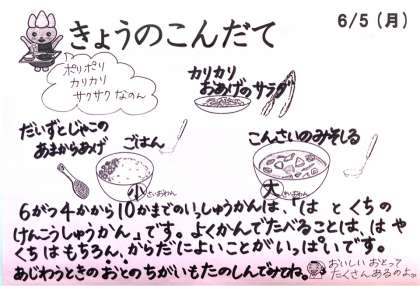 きょうのこんだて
6/5（月）
ポリポリ
カリカリ
サクサク なのん
カリカリ
おあげのサラダ
だいずとじゃこの
あまからあげ
ごはん
こんさいのみそしる
小さいおわん
大きいおわん
6がつ4かから10かまでのいっしゅうかんは、「は と くちの
けんこうしゅうかん」です。よくかんでたべることは、はや
くちはもちろん、からだによいことがいっぱいです。
あじわうときのおとのちがいもたのしんでみてね。
おいしい おとって
たくさんあるのよっ